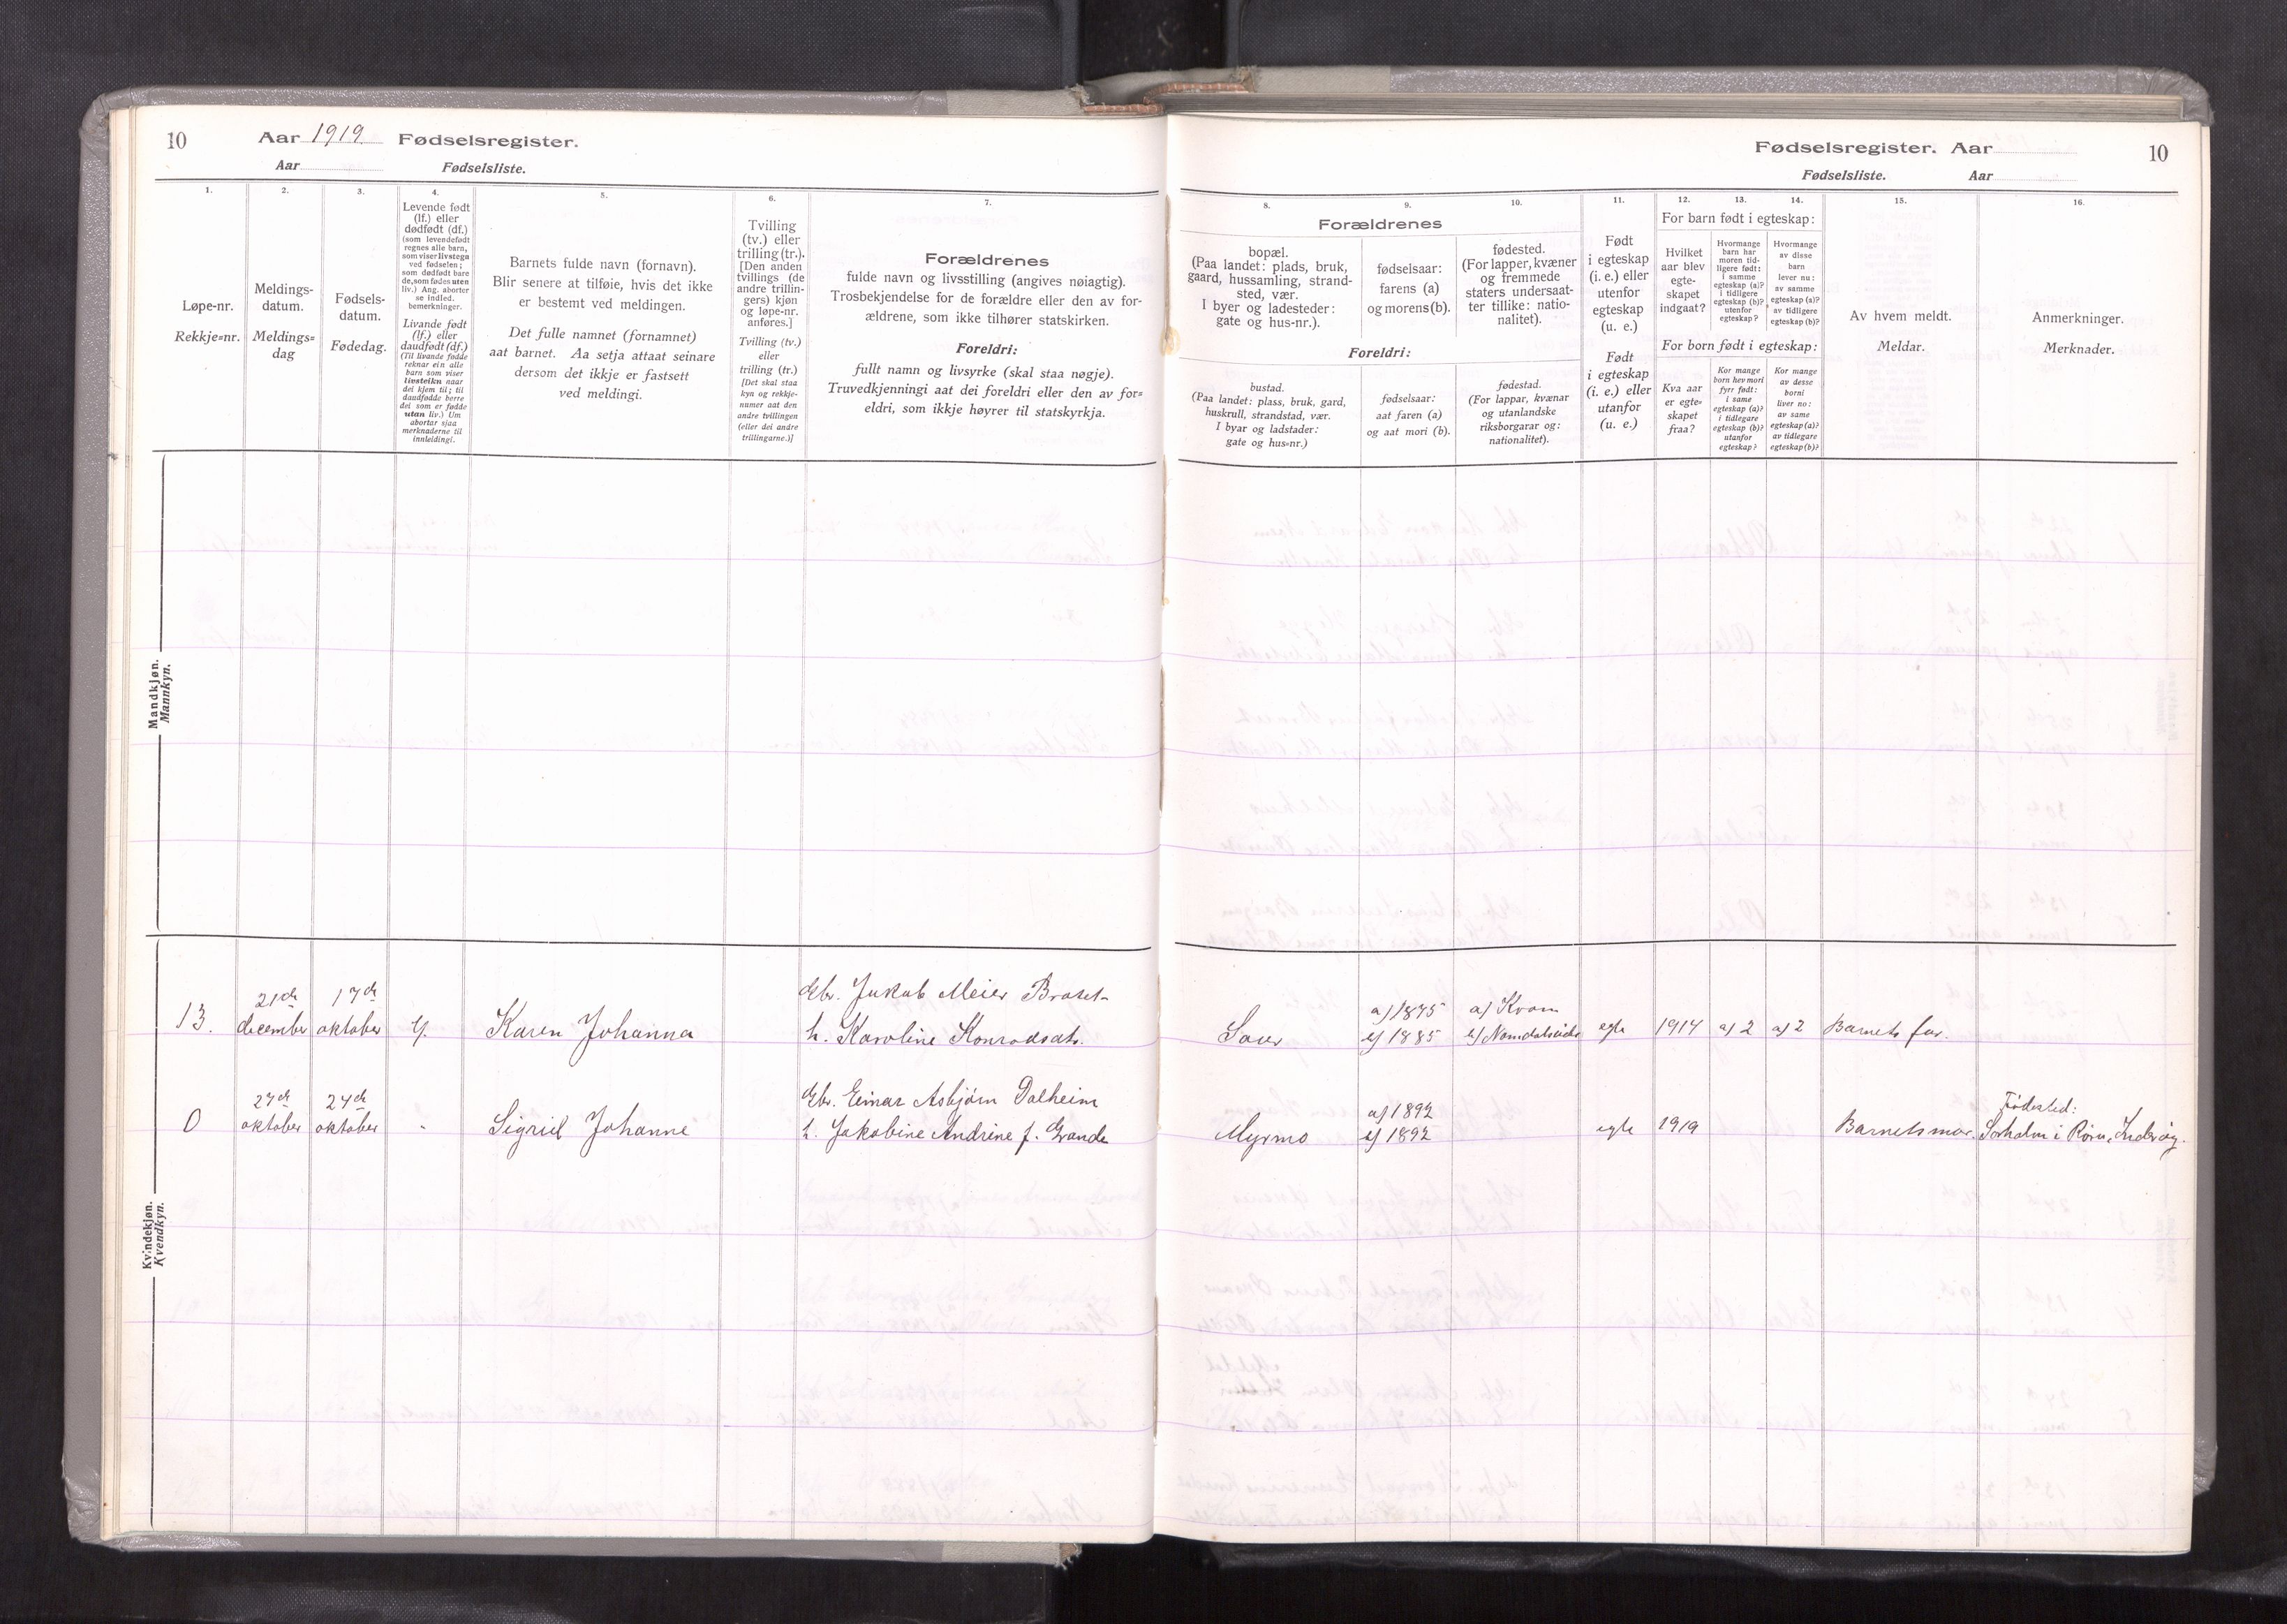 10 Aar 1919. Fødselsregister.
Aar Fødselsliste.
1. 2. 3. 4. 5. 6. 7.
Løpe-nr.
Rekkje=nr.
Meldings-
datum.
Meldings=
dag
Fødsels-
datum.
Fødedag.
Levende født
(lf.) eller
dødfødt (df.)
(som levendefødt
regnes alle barn,
som viser livstegn
ved fødselen;
som dødfødt bare
de, som fødes uten
liv.) Ang. aborter
se indled.
bemerkninger.
Livande født
(lf.) eller
daudfødt (df.)
(Til livande fødde
reknar ein alle
barn som viser
livsteikn naar
dei kjem til; til
daudfødde berre
dei som er fødde
utan liv.) Um
abortar sjaa
merknaderne til
innleidingi.
Barnets fulde navn (fornavn).
Blir senere at tilføie, hvis det ikke
er bestemt ved meldingen.
Det fulle namnet (fornamnet)
aat barnet. Aa setja attaat seinare
dersom det ikkje er fastsett
ved meldingi.
Tvilling
(tv.) eller
trilling (tr.).
[Den anden
tvillings (de
andre trillin-
gers) kjøn
og løpe-nr.
anføres.]
Tvilling (tv.)
eller
trilling (tr.)
[Det skal staa
kyn og rekkje-
numer aat den
andre tvillingen
(eller dei andre
trillingarne.)]
Forældrenes
fulde navn og livsstilling (angives nøiagtig).
Trosbekjendelse for de forældre eller den av for-
ældrene, som ikke tilhører statskirken.
Foreldri:
fullt namn og livsyrke (skal staa nøgje).
Truvedkjenningi aat dei foreldri eller den av for=
eldri, som ikkje høyrer til statskyrkja.
Mandkjøn.
Mannkyn.
13. 21de december 17de oktober Karen Johanna
Gbr. Jakob Meier Braset
h. Karoline Konradsdtr.
0 27de oktober 24de oktober " Sigrid Johanne
Gbr. Einar Asbjørn Dalheim
h. Jakobine Andrine f. Grande
Kvindekjøn.
Kvendkyn.
Fødselsregister. Aar 10
Fødselsliste. Aar
8. 9. 10. 11. 12. 13. 14. 15. 16.
Forældrenes
bopæl.
(Paa landet: plads, bruk,
gaard, hussamling, strand-
sted, vær.
I byer og ladesteder:
gate og hus-nr.).
fødselsaar:
farens (a)
og morens (b).
fødested.
(For lapper, kvæner
og fremmede
staters undersaat-
ter tillike: natio-
nalitet).
Foreldri:
bustad.
(Paa landet: plass, bruk, gard,
huskrull, strandstad, vær.
I byar og ladstader:
gate og hus=nr.)
fødselsaar:
aat faren (a)
og aat mori (b).
fødestad.
(For lappar, kvænar
og utanlandske
riksborgarar og:
nationalitet).
Født
i egteskap
(i. e.) eller
utenfor
egteskap
(u. e.)
Født
i egteskap
(i. e.) eller
utanfor
egteskap
(u. e.)
For barn født i egteskap:
Hvilket
aar blev
egte-
skapet
indgaat?
Hvormange
barn har
moren tid-
ligere født:
i samme
egteskap (a)?
i tidligere
egteskap (b)?
utenfor
egteskap?
Hvormange
av disse
barn
lever nu:
av samme
egteskap (a)?
av tidligere
egteskap (b)?
For born født i egteskap:
Kva aar
er egte=
skapet
fraa?
Kor mange
born hev mori
fyrr født:
i same
egteskap (a)?
i tidlegare
egteskap (b)?
utanfor
egteskap?
Kor mange
av desse
borni
liver no:
av same
egteskap (a)?
av tidlegare
egteskap (b)?
Av hvem meldt.
Meldar.
Anmerkninger.
Merknader.
a) 1875 a) Kvam
b) 1885 b) Namdalseidet egte 1914 a) 2 a) 2 Barnets far.
a) 1892
Myrmo b) 1892 egte 1919 Barnets mor.
Fødested:
i Røra, Inderøy.